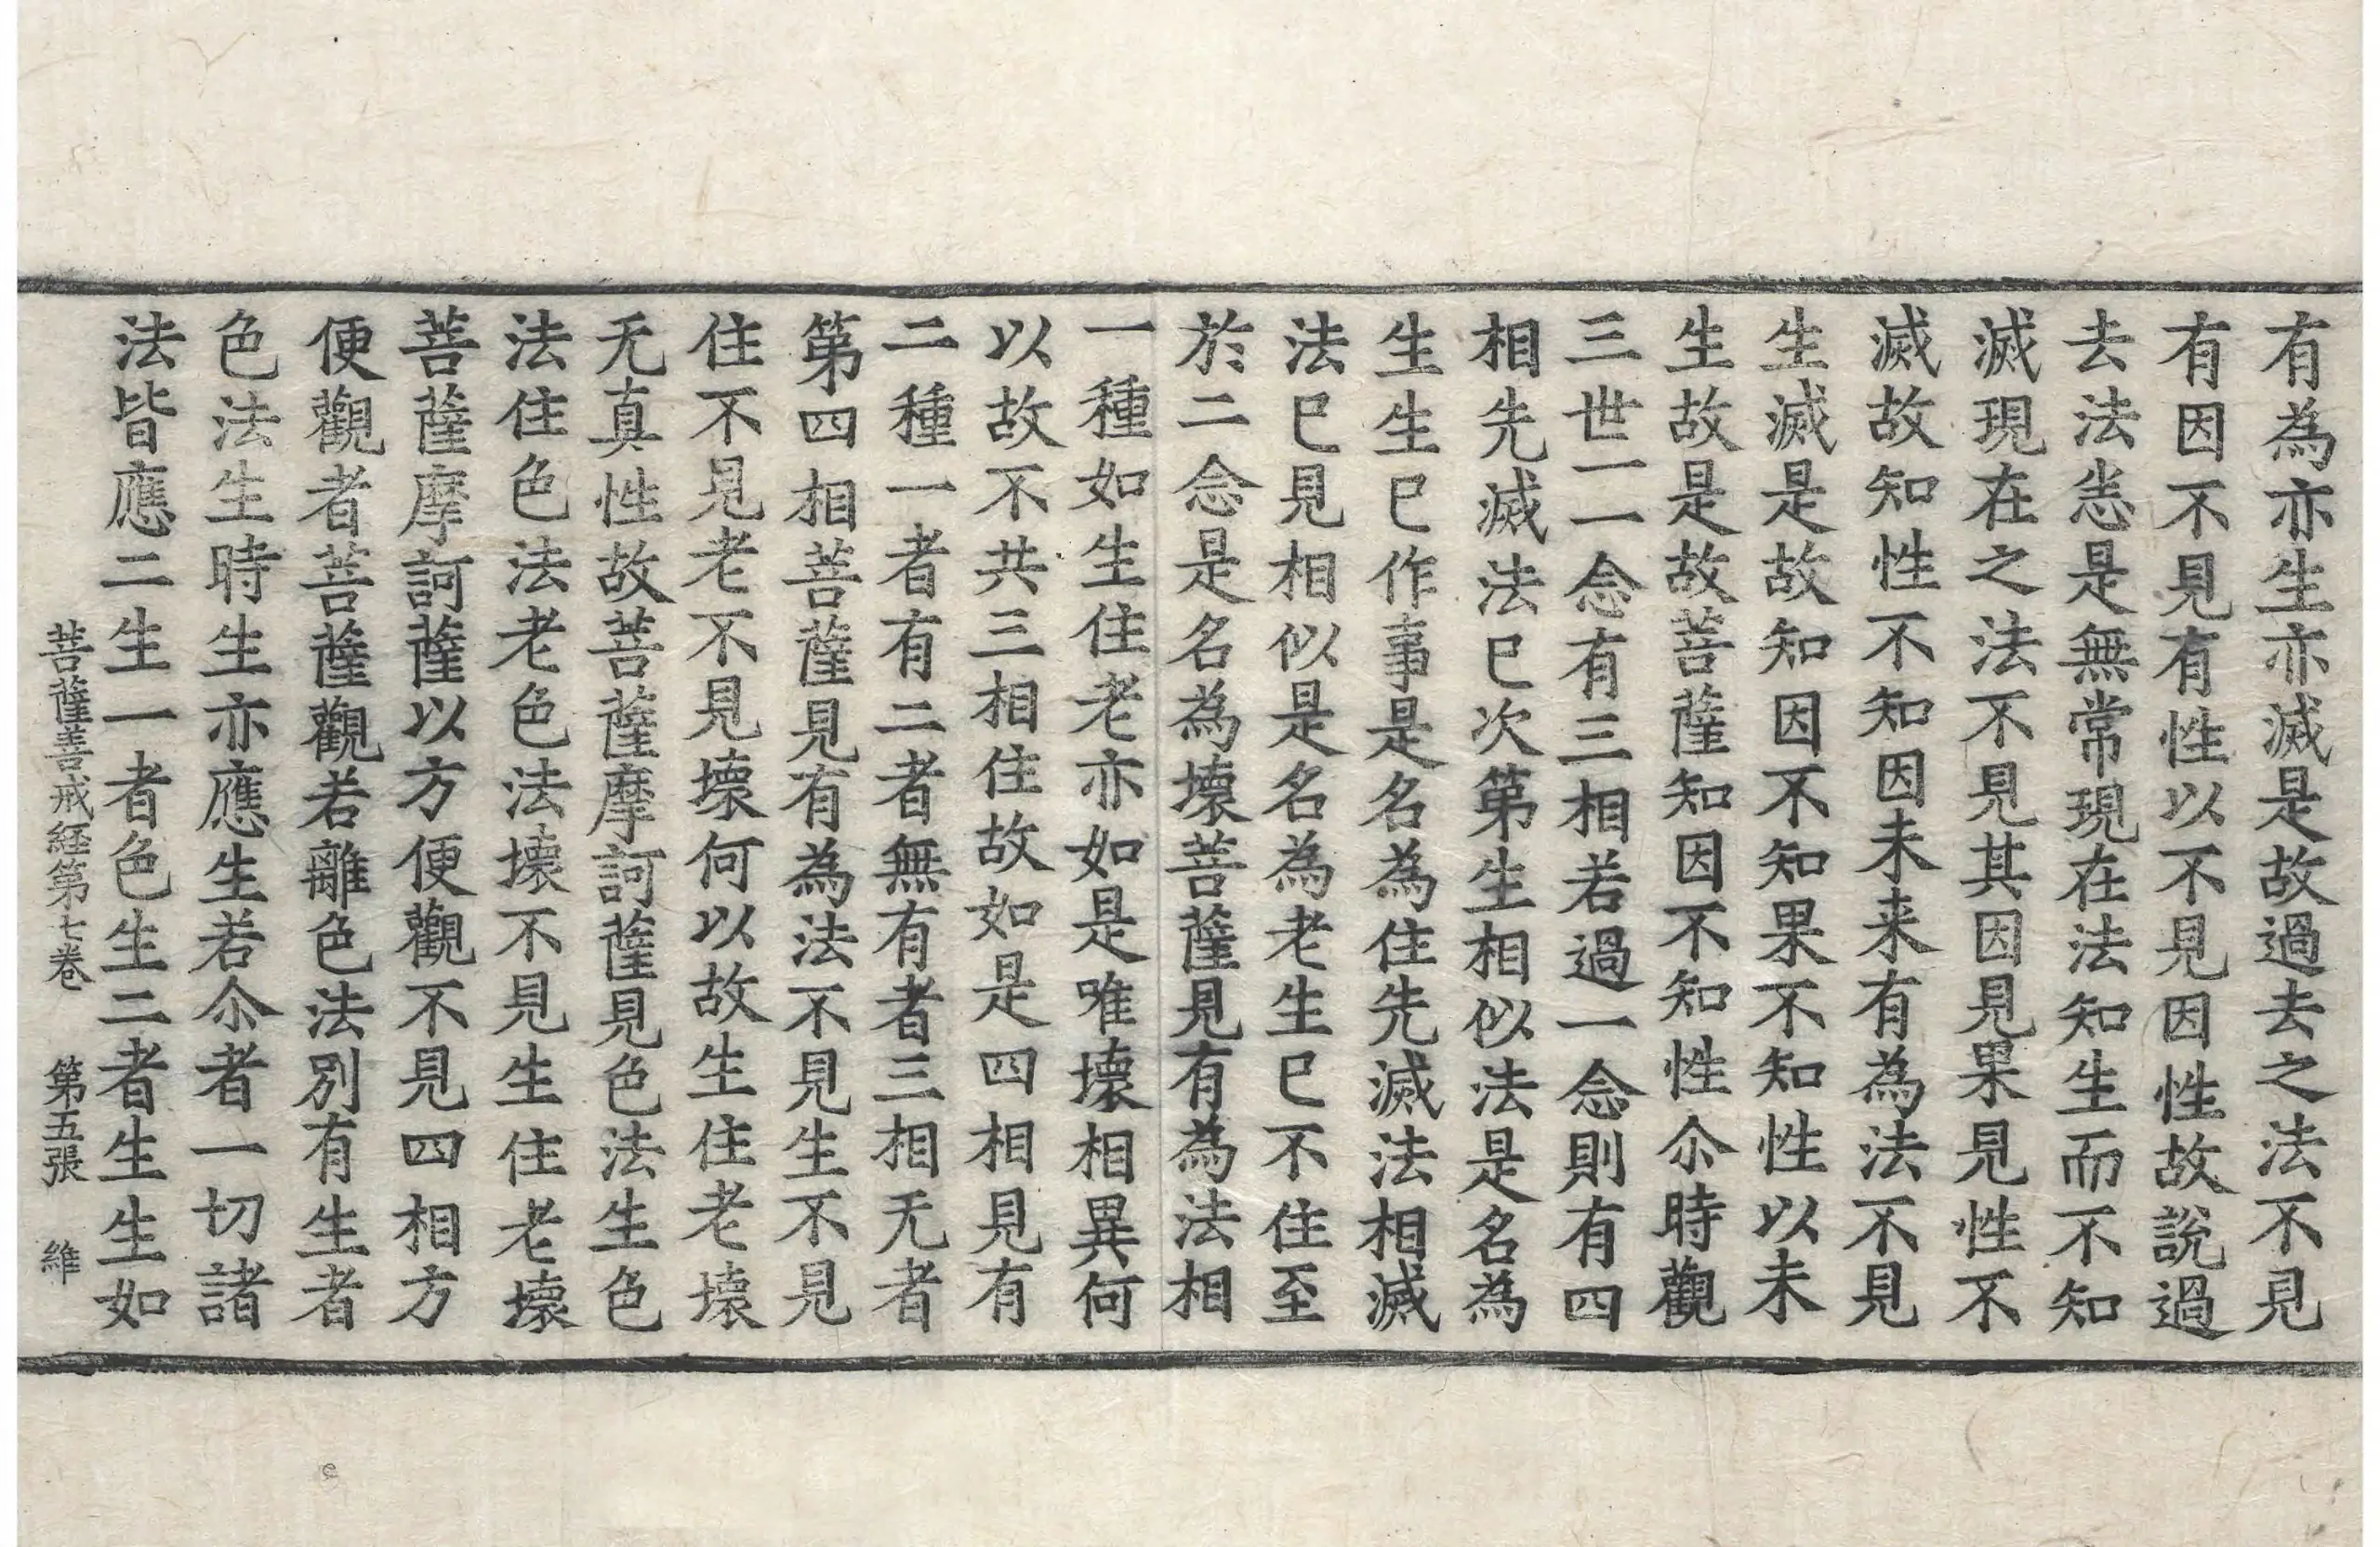 有為亦生亦滅是故過去之法不見
有因不見有性以不見因性故說過
去法恙是無常現在法知生而不知
滅現在之法不見其因見果見性不
滅故知性不知因未来有為法不見
生滅是故知因不知果不知性以未
生故是故菩薩知因不知性尒時觀
三世一一念有三相若過一念則有四
相先滅法已次第生相似法是名為
生生已作事是名為住先滅法相滅
法已見相似是名為老生已不住至
於二念是名為壞菩薩見有為法相
一種如生住老亦如是唯壞相異何
以故不共三相住故如是四相見有
二種一者有二者無有者三相无者
第四相菩薩見有為法不見生不見
住不見老不見壞何以故生住老壞
无真性故菩薩摩訶薩見色法生色
法住色法老色法壞不見生住老壞
菩薩摩訶薩以方便觀不見四相方
便觀者菩薩觀若離色法別有生者
色法生時生亦應生若尒者一切諸
法皆應二生一者色生二者生生如
菩薩善戒経第七卷 第五張 維